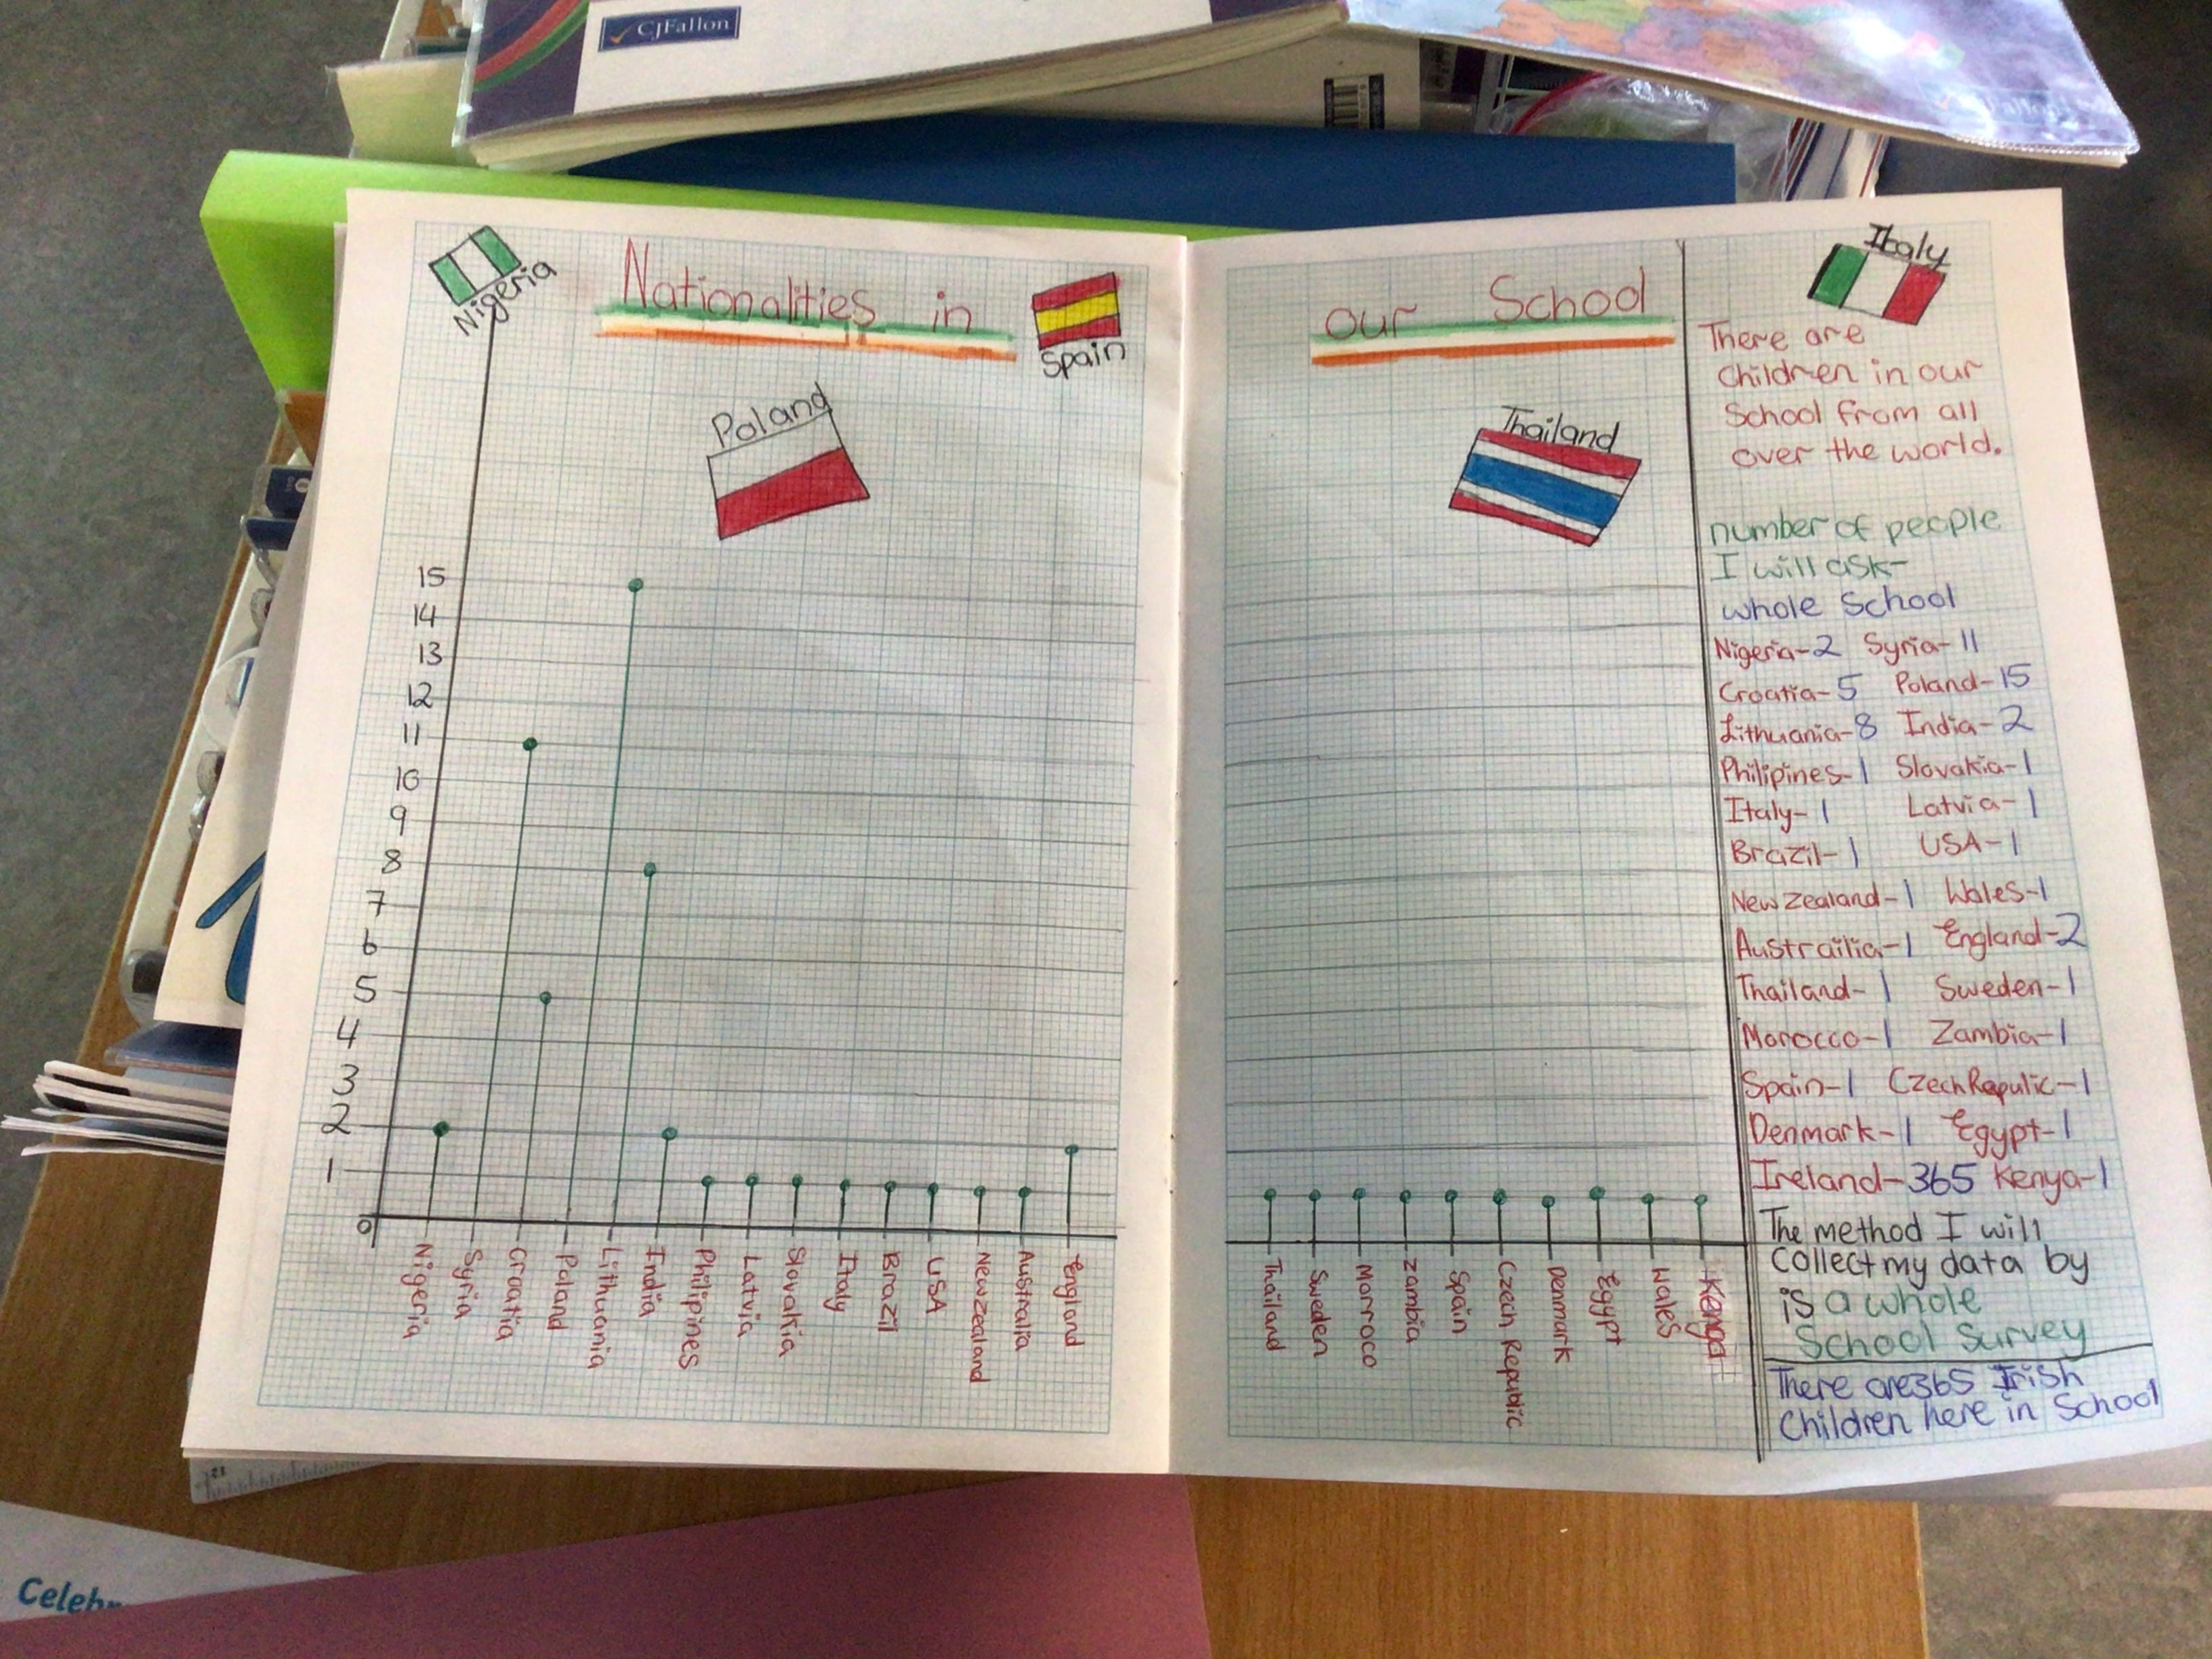 CJFallon
Nigeria
Nationalities in
Spain
our School
Italy
Poland
Thailand
15
14
13
12
11
10
9
8
7
6
5
4
3
2
1
0
Nigeria
Syria
Croatia
Poland
Lithuania
India
Philipines
Latvia
Slovakia
Italy
Brazil
USA
New zealand
Australia
England
Thailand
Sweden
Morroco
Zambia
Spain
Czech Republic
Denmark
Egypt
Wales
Kenya
There are
Children in our
School from all
over the world.
number of people
I will ask-
whole School
Nigeria-2 Syria-11
Croatia-5 Poland-15
Lithuania-8 India-2
Philipines-1 Slovakia-1
Italy-1 Latvia-1
Brazil-1 USA-1
New Zealand-1 Wales-1
Austrailia-1 England-2
Thailand-1 Sweden-1
Morocco-1 Zambia-1
Spain-1 Czech Repulic-1
Denmark-1 Egypt-1
Ireland-365 Kenya-1
The method I will
Collect my data by
is a whole
School Survey
There are 365 Irish
Children here in School